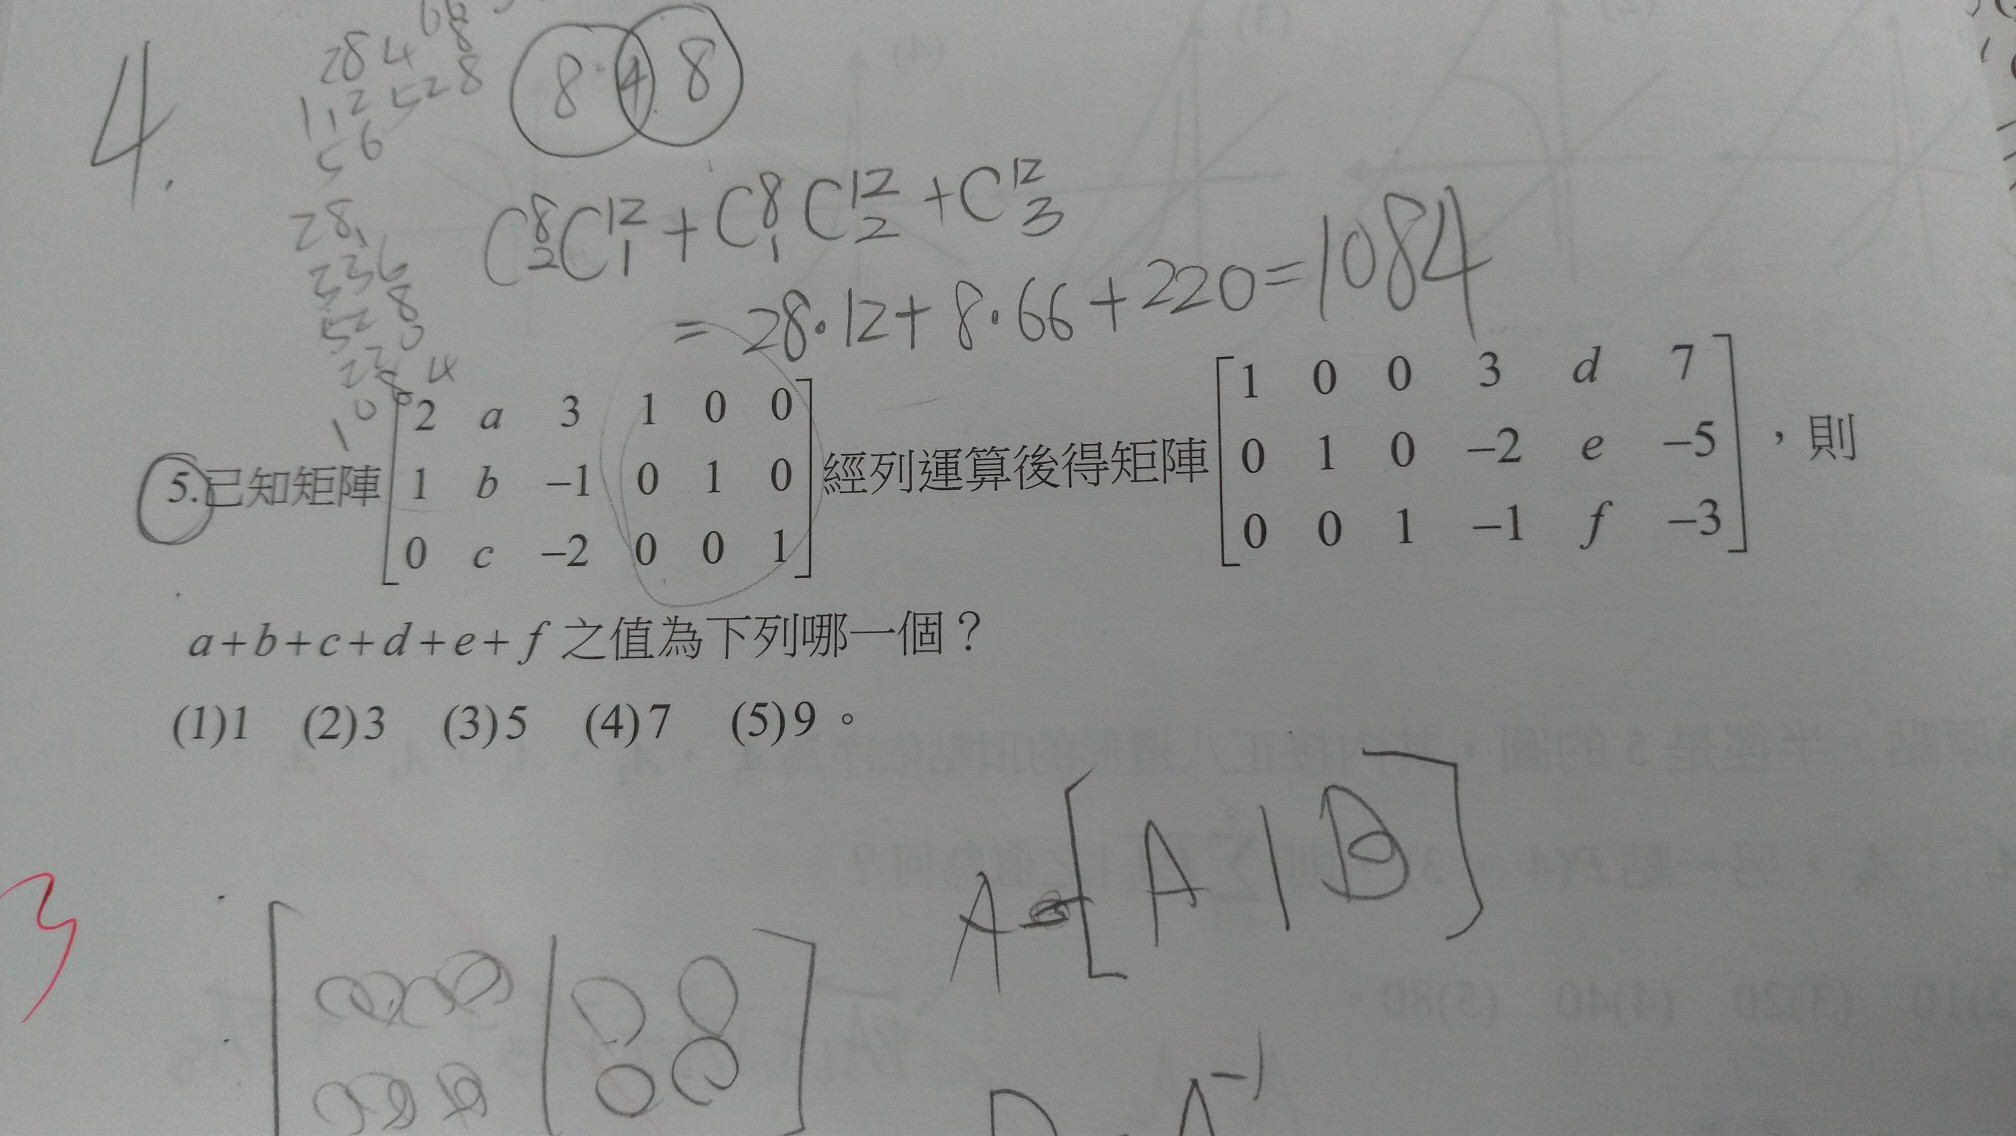 4.
68
284
112 528
56
8 4 8
28
336
528
220
1084
C⁸₂C¹²₁+C⁸₁C¹²₂+C¹²₃
=28·12+8·66+220=1084
5.已知矩陣[2 a 3 1 0 0; 1 b −1 0 1 0; 0 c −2 0 0 1]經列運算後得矩陣[1 0 0 3 d 7; 0 1 0 −2 e −5; 0 0 1 −1 f −3],則
a+b+c+d+e+f 之值為下列哪一個?
(1)1 (2)3 (3)5 (4)7 (5)9。
A [A|B]
3
A⁻¹